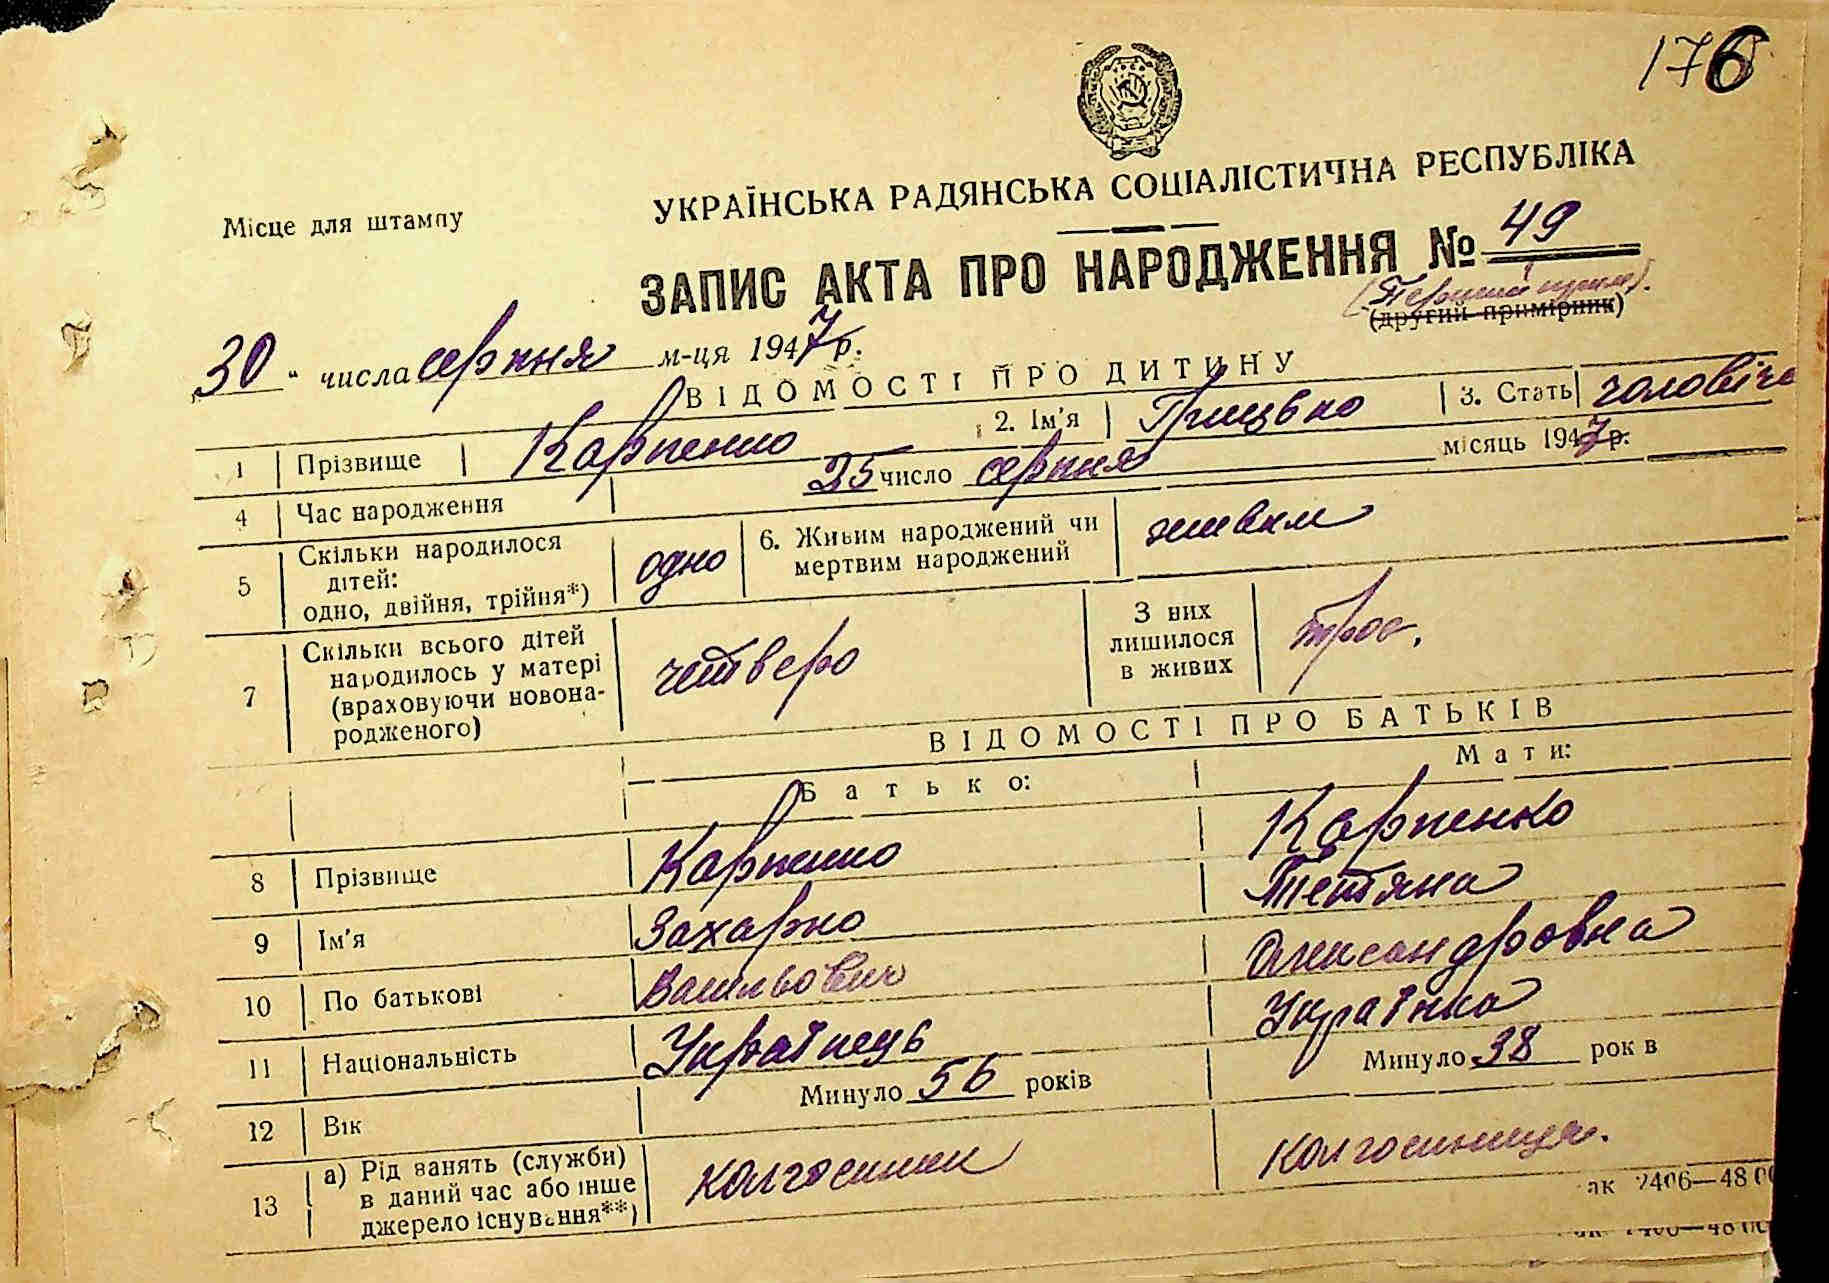 176
УКРАЇНСЬКА РАДЯНСЬКА СОЦІАЛІСТИЧНА РЕСПУБЛІКА
Місце для штампу
ЗАПИС АКТА ПРО НАРОДЖЕННЯ № 49
(другий примірник)
30 " числа серпня м-ця 1947 р.
ВІДОМОСТІ ПРО ДИТИНУ
1 Прізвище Карпенко 2. Ім'я Грицько 3. Стать чоловіча
4 Час народження 25 число серпня місяць 1947 р.
5 Скільки народилося дітей: одно, двійня, трійня*) одно 6. Живим народжений чи мертвим народжений живим
7 Скільки всього дітей народилось у матері (враховуючи новонародженого) четверо З них лишилося в живих троє.
ВІДОМОСТІ ПРО БАТЬКІВ
Батько: Мати:
8 Прізвище Карпенко Карпенко
9 Ім'я Захарко Тетяна
10 По батькові Васильович Олександровна
11 Національність Українець Українка
12 Вік Минуло 56 років Минуло 38 рок в
13 а) Рід занять (служби) в даний час або інше джерело існування**) колгоспник колгоспниця.
ак 2406—48 00